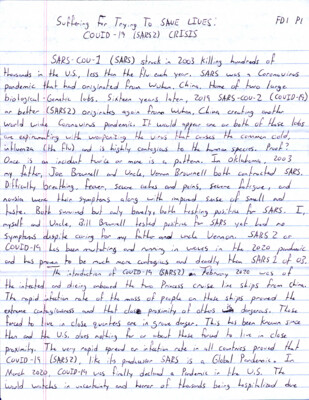 Suffering For Trying To SAVE LIVES: FD1 P1
COVID-19 (SARS2) CRISIS
SARS-COV-1 (SARS) struck in 2003 killing hundreds of
thousands in the U.S., less than the flu each year. SARS was a Coronavirus
pandemic that had originated from Wuhan, China, home of two large
biological-Genetic labs. Sixteen years later, 2019 SARS-COV-2 (COVID-19)
or better (SARS2) originates again from Wuhan, China creating another
world wide Coronavirus Pandemic. It would appear one or both of these labs
are experimenting with weaponizing the virus that causes the common cold,
influenza (the flu) and is highly contagious to the human species. Proof?
Once is an incident twice or more is a pattern. In Oklahoma, 2003
my father, Joe Brownell and Uncle, Vernon Brownell both contracted SARS.
Difficulty breathing, fever, severe aches and pains, severe fatigue, and
nausia were their symptoms along with impared sense of smell and
taste. Both survived but only barely, both testing positive for SARS. I,
myself and Uncle, Bill Brownell tested positive for SARS yet had no
symptoms despite caring for my father and uncle Vernon. SARS 2 or
COVID-19 has been mutating and running in waves in the 2020 pandemic
and has proven to be much more contagious and deadly then SARS 1 of 03.
The introduction of COVID-19 (SARS2) February 2020 was of
the infected and dieing onboard the two Princess cruise line ships from China.
The rapid infection rate of the mass of people on these ships proved the
extreme contagiousness and that close proximity of others is dangerous. Those
forced to live in close quarters are in grave danger. This has been known since
then and the U.S. does nothing for or about those forced to live in close
proximity. The very rapid spread or infection rate in all countries proved that
COVID-19 (SARS2), like its predecessor SARS is a Global Pandemic. In
March 2020, COVID-19 was finally declared a Pandemic in the U.S. The
world watches in uncertainty and horror of thousands being hospitalized due